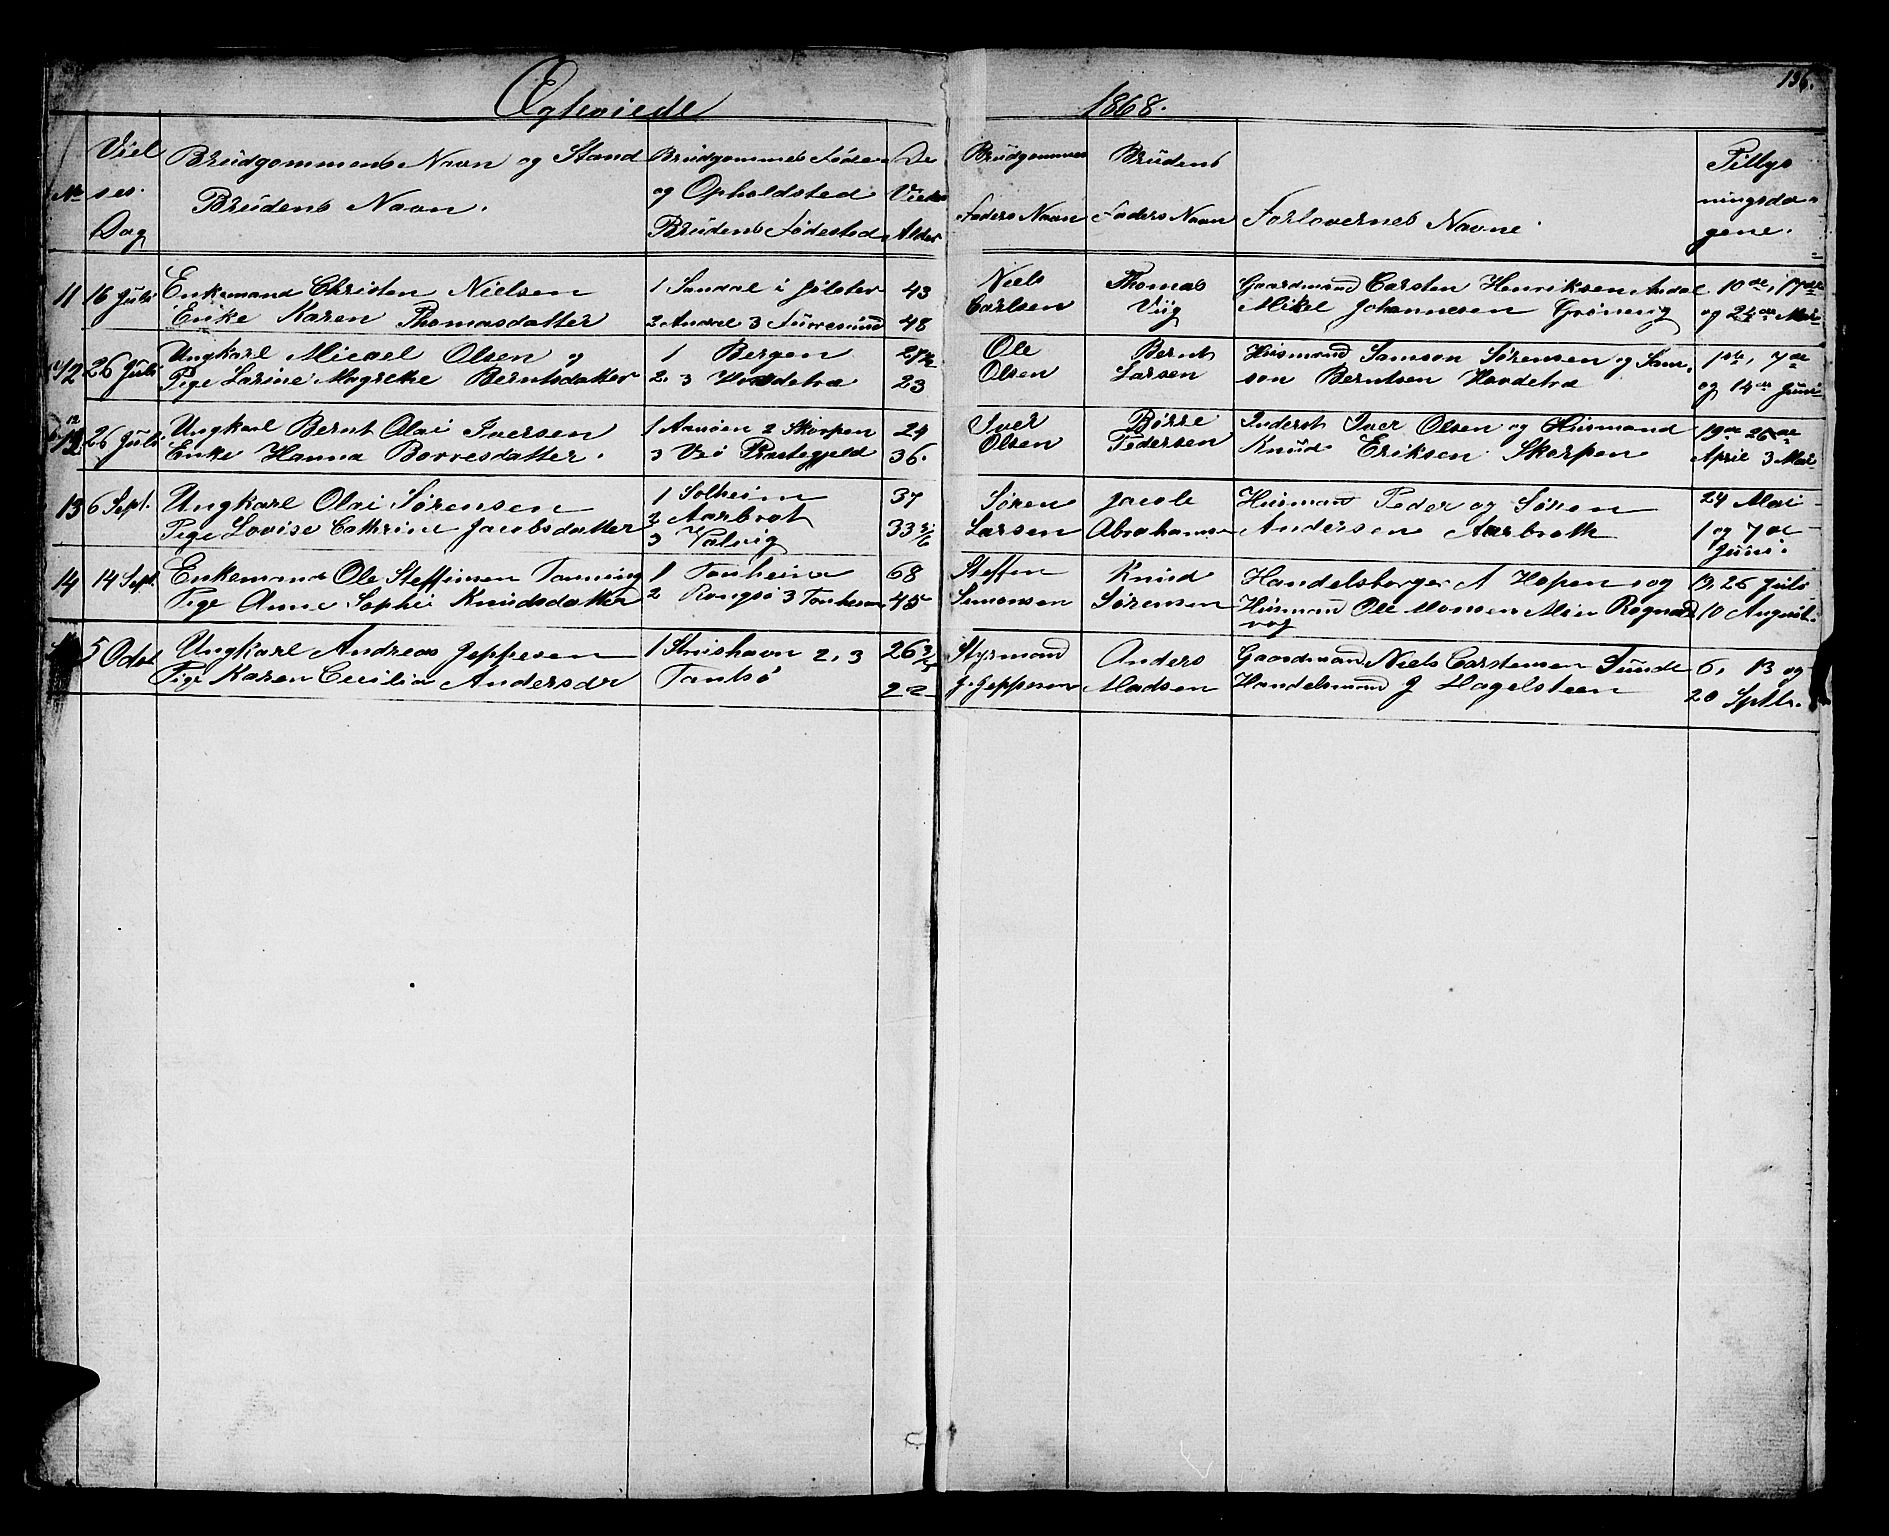 Ægteviede
1868.
136.
No
Viel
ses.
Dag
Brudgommens Navn og Stand
Brudens Navn.
Brudgommens Føde
og Opholdsted
Brudens Fødested
De
Viedes
Alder
Brudgommens
Faders Navn
Brudens
Faders Navn
Forlovernes Navne.
Tillys
ningsda-
gene.
11
16 Juli
Enkemand Christen Nielsen
Enke Karen Thomasdatter
1 Sandal i Jølster
2 Andal 3 Furresund
43
48
Niels
Carlsen
Thomas
Viig
Gaardmand Carsten Henriksen Andal
Mikel Johannesen Grønevig
10de, 17de
og 24de Mai
26 Juli
Ungkarl Micael Olsen og
Pige Larine Magrethe Berntsdatter
1 Bergen
2. 3 Hovdetræ
23
Ole
Olsen
Bernt
Larsen
Huismand Samson Sørensen og Sam-
son Berntsen Hovdetræ
1ste, 7de
og 14de Juni
12
26 Juli
Ungkarl Bernt Olai Iversen
Enke Hanna Børresdatter.
1 Aamøen 2 Skorpen
3 Veø Præstegjeld
24
36.
Iver
Olsen
Børre
Pedersen
Inderst Iver Olsen og Huismand
Knud Eriksen Skorpen
19de 26de
April 3 Mai
13
6 Sept.
Ungkarl Olai Sørensen
Pige Lovise Cathrine Jacobsdatter
1 Solheim
2 Aarbrot
3 Valvig
37
33
Søren
Larsen
Jacob
Abrahamsen
Huismand Peder og Søren
Andersen Aarbroth
24 Mai
1 og 7de
Juni.
14
14 Sept.
Enkemand Ole Steffensen Tonning
Pige Anne Sophie Knudsdatter
1 Tonheim
2 Rongsø 3 Tonheim
68
45
Steffen
Simonsen
Knud
Sørensen
Handelsborger A Hopen og
Huismand Ole Monsen Rognald
vog
19, 26 Juli
10 August.
5 Octob
Ungkarl Andreas Jeppesen
Pige Karen Cecilia Andersdr
1 Knishavn 2, 3
Tansø
26
22
Styrmand
J. Jeppesen
Anders
Madsen
Gaardmand Niels Carstensen Sunde
Handelsmand J Hagelsteen
6, 13 og
20 Septbr.